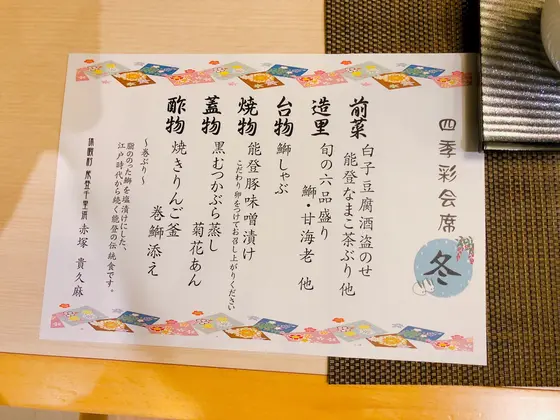 四季彩会席
冬
前菜 白子豆腐酒盗のせ
能登なまこ茶ぶり 他
造里 旬の六品盛り
鰤・甘海老 他
台物 鰤しゃぶ
焼物 能登豚味噌漬け
こだわり卵をつけてお召し上がりください
蓋物 黒むつかぶら蒸し
菊花あん
酢物 焼きりんご釜
巻鰤添え
～巻ぶり～
脂ののった鰤を塩漬けにした、
江戸時代から続く能登の伝統食です。
休暇村 能登千里浜 赤塚 貴久麻